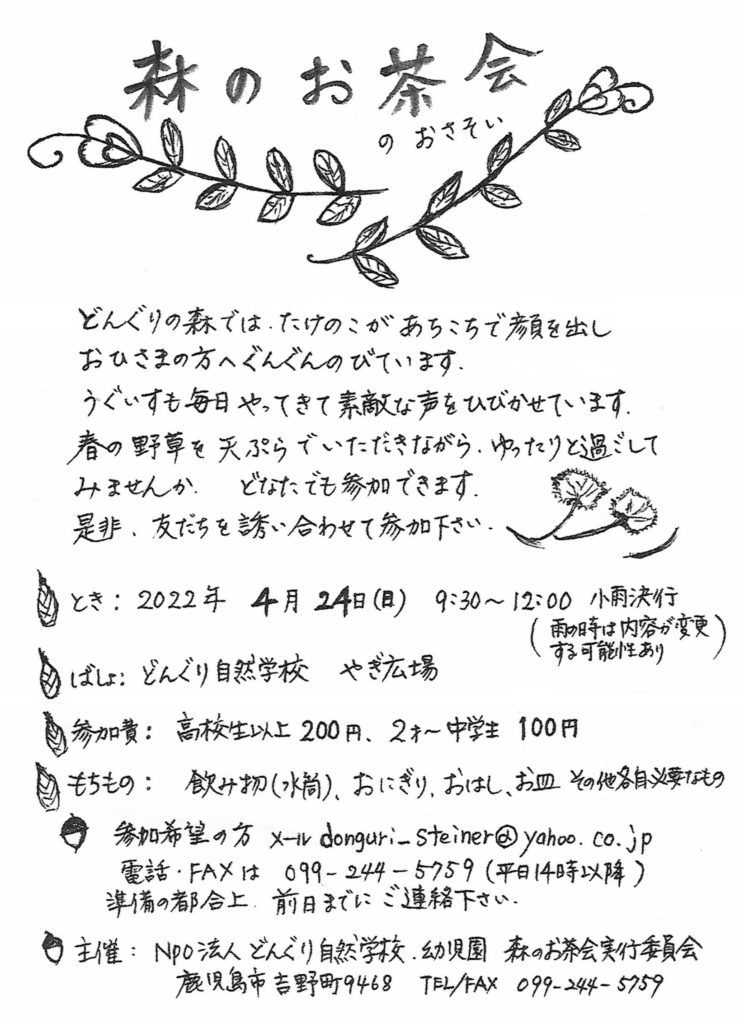 森のお茶会
のおさそい
どんぐりの森では、たけのこがあちこちで顔を出し
おひさまの方へぐんぐんのびています。
うぐいすも毎日やってきて素敵な声をひびかせています。
春の野草を天ぷらでいただきながら、ゆったりと過ごして
みませんか。 どなたでも参加できます。
是非、友だちを誘い合わせて参加下さい。
とき： 2022年 4月 24日(日) 9:30～12:00 小雨決行
(雨の時は内容が変更
する可能性あり)
ばしょ： どんぐり自然学校 やぎ広場
参加費： 高校生以上 200円、2才～中学生 100円
もちもの： 飲み物(水筒)、おにぎり、おはし、お皿 その他各自必要なもの
参加希望の方 メール donguri_steiner@yahoo.co.jp
電話・FAXは 099-244-5759 (平日14時以降)
準備の都合上、前日までにご連絡下さい。
主催： NPO法人 どんぐり自然学校・幼児園 森のお茶会実行委員会
鹿児島市吉野町9468 TEL/FAX 099-244-5759